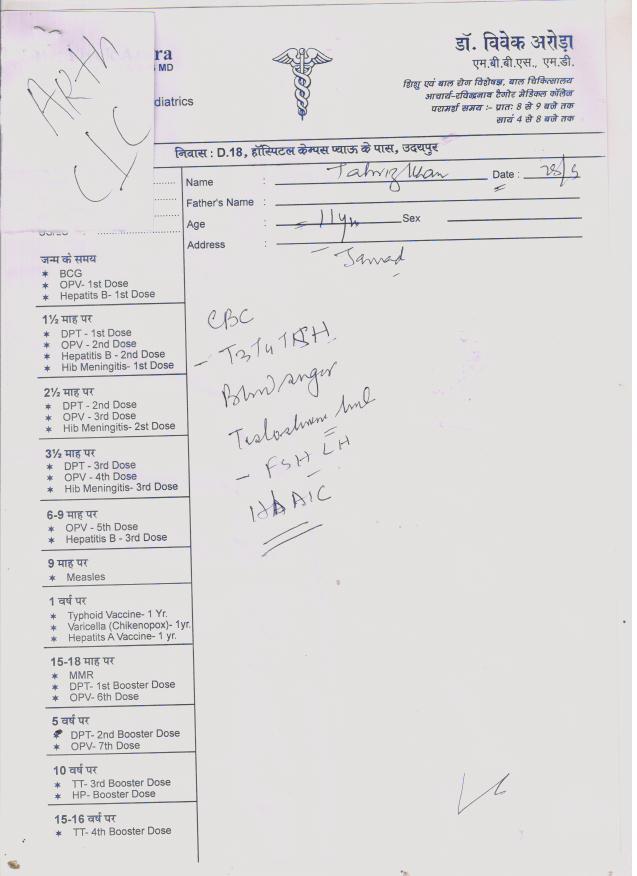 ra
MD
diatrics
डॉ. विवेक अरोड़ा
एम.बी.बी.एस., एम.डी.
शिशु एवं बाल रोग विशेषज्ञ, बाल चिकित्सालय
आचार्य-रविन्द्रनाथ टैगोर मेडिकल कॉलेज
परामर्श समय :- प्रातः 8 से 9 बजे तक
सायं 4 से 8 बजे तक
निवास : D.18, हॉस्पिटल केम्पस प्याऊ के पास, उदयपुर
Name : Khan Date : 28/5
Father's Name :
Age : 11yr Sex
Address :
जन्म के समय
* BCG
* OPV- 1st Dose
* Hepatits B- 1st Dose
1½ माह पर
* DPT - 1st Dose
* OPV - 2nd Dose
* Hepatitis B - 2nd Dose
* Hib Meningitis- 1st Dose
2½ माह पर
* DPT - 2nd Dose
* OPV - 3rd Dose
* Hib Meningitis- 2st Dose
3½ माह पर
* DPT - 3rd Dose
* OPV - 4th Dose
* Hib Meningitis- 3rd Dose
6-9 माह पर
* OPV - 5th Dose
* Hepatitis B - 3rd Dose
9 माह पर
* Measles
1 वर्ष पर
* Typhoid Vaccine- 1 Yr.
* Varicella (Chikenopox)- 1yr.
* Hepatits A Vaccine- 1 yr.
15-18 माह पर
* MMR
* DPT- 1st Booster Dose
* OPV- 6th Dose
5 वर्ष पर
* DPT- 2nd Booster Dose
* OPV- 7th Dose
10 वर्ष पर
* TT- 3rd Booster Dose
* HP- Booster Dose
15-16 वर्ष पर
* TT- 4th Booster Dose
CBC
- T3 T4 TSH
Blood sugar
Testosterone level
- FSH LH
HbA1C